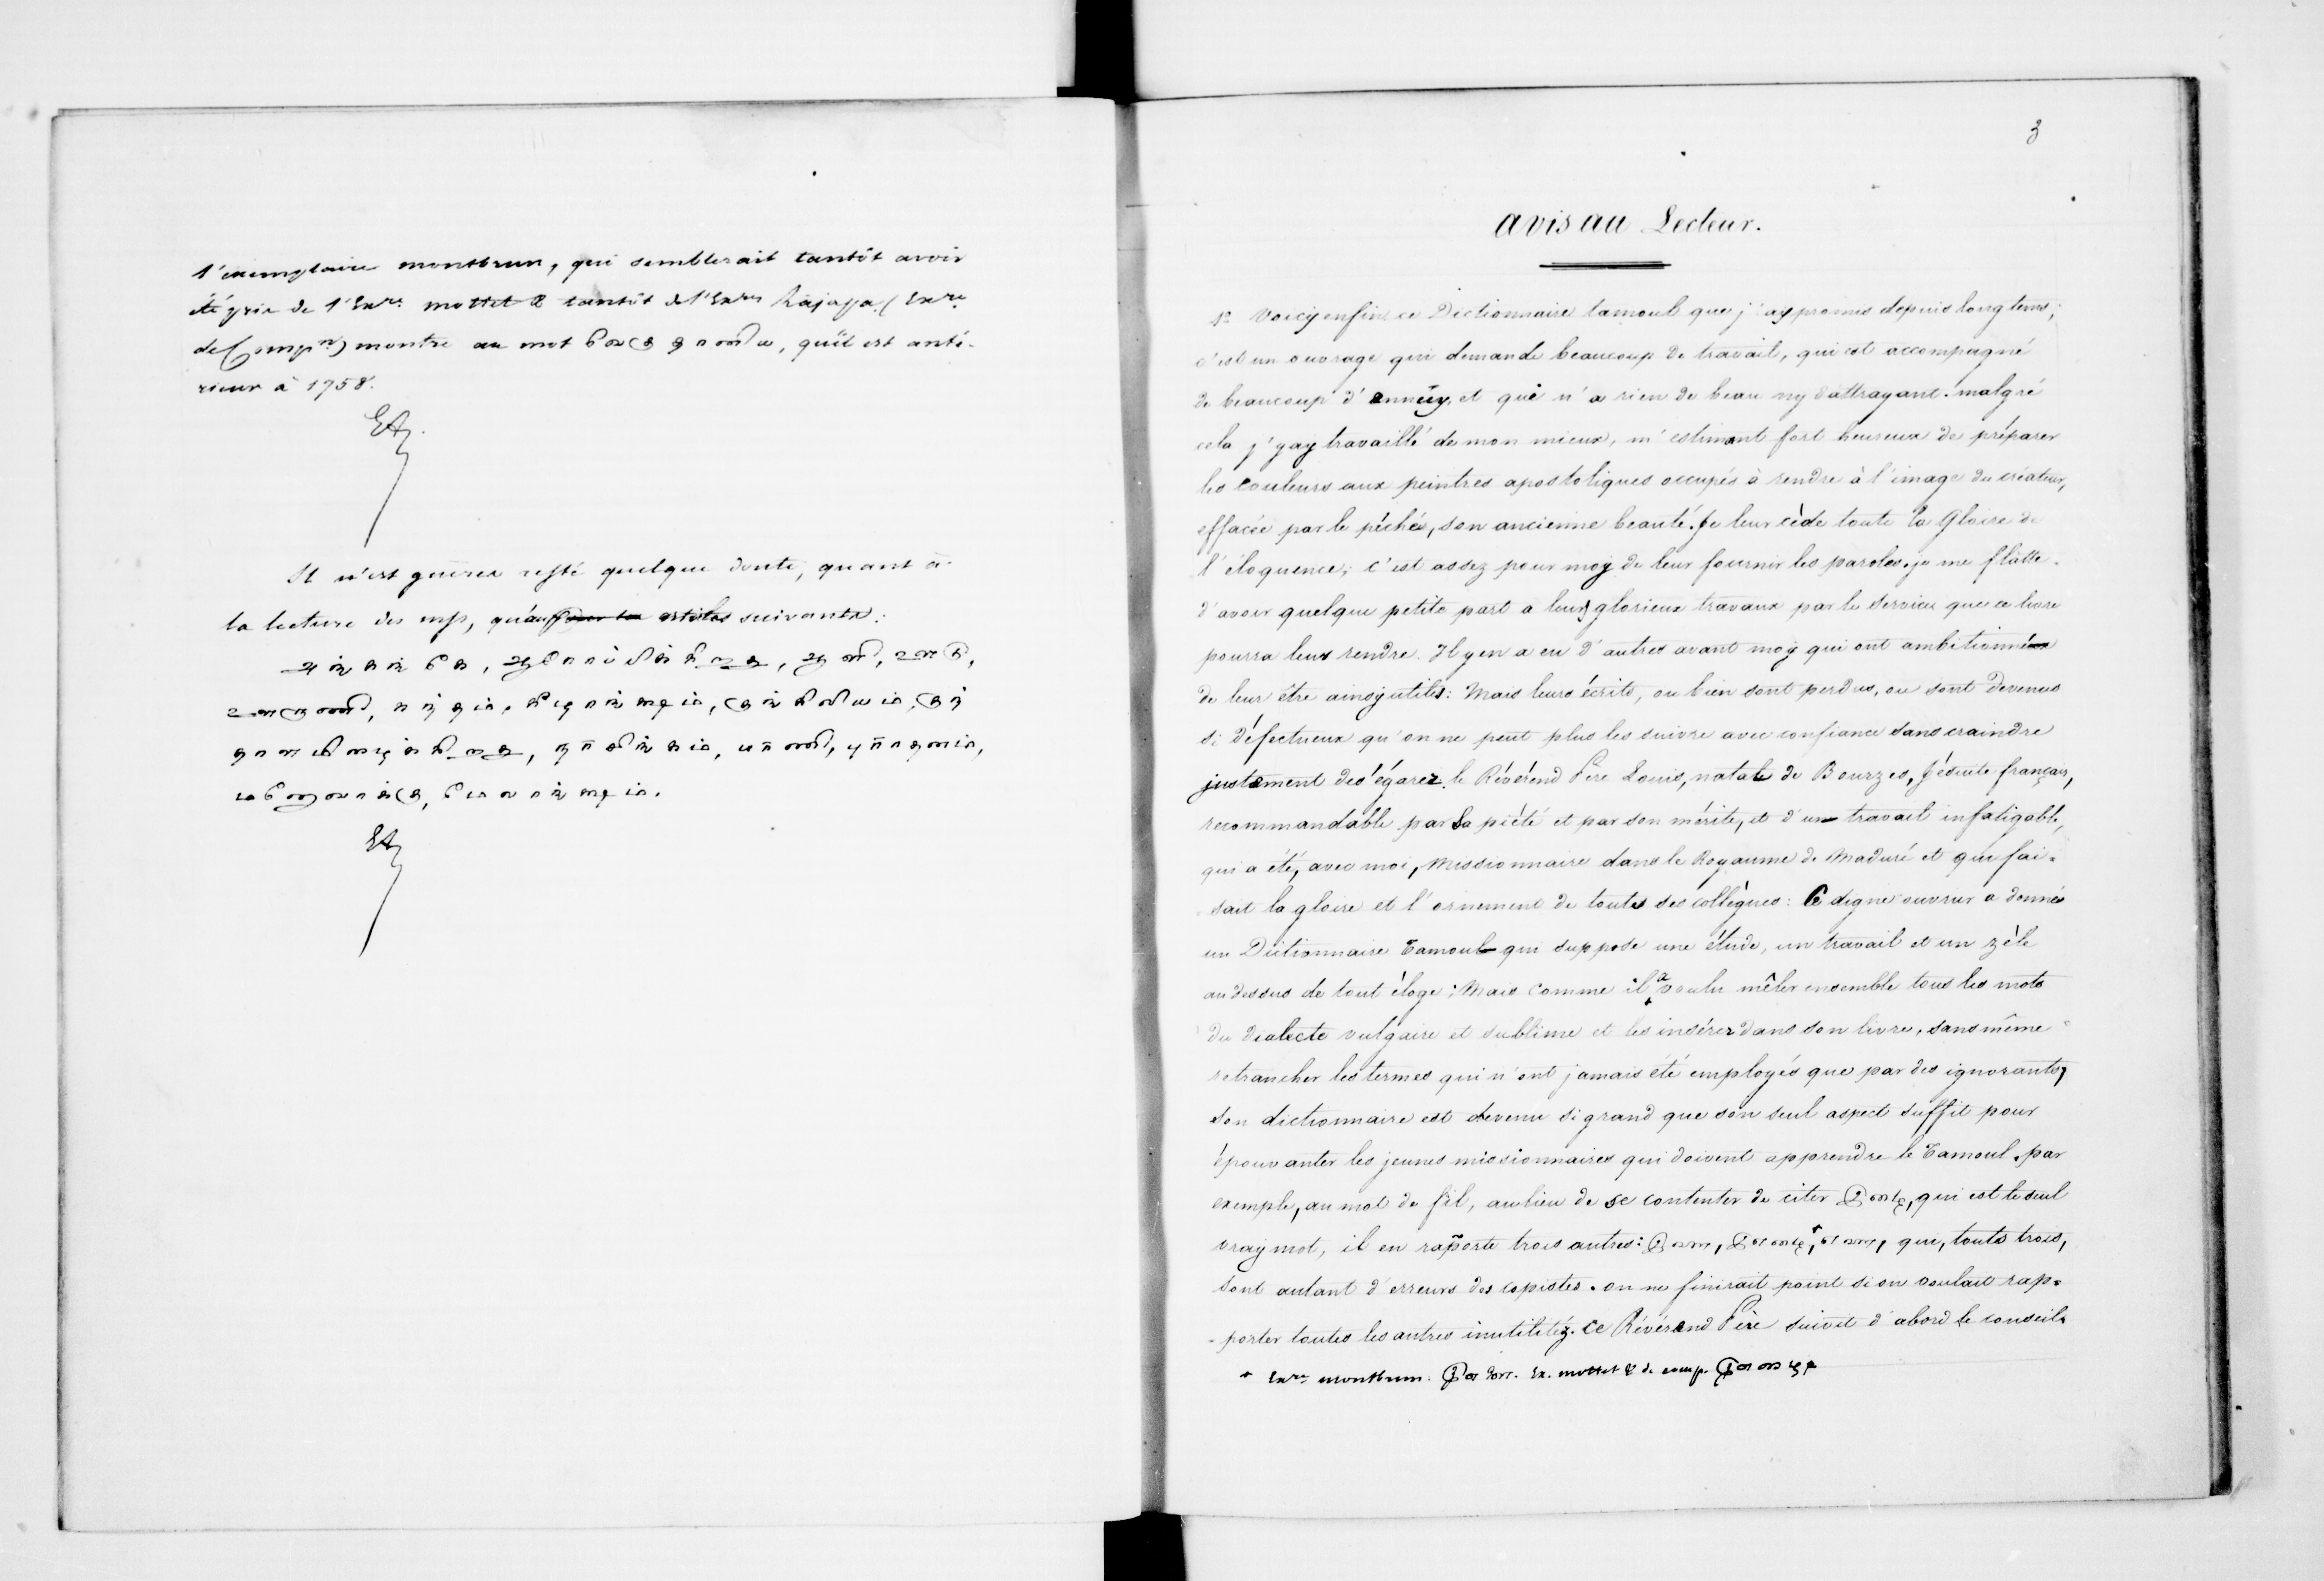 l'exemplaire montbrun, qui semblerait tantôt avoir
été pris de l'Exre mottet & tantôt de l'Exre Rajapa. (Exre
de Compn) montre au mot, qu'il est anté-
rieur à 1758.
Il n'est guères resté quelque doute, quant à
la lecture des mss, qu'au articles suivants:
3
Avis au Lecteur.
1º Voicy enfin ce Dictionnaire tamoul que j'ay promis depuis longtems;
c'est un ouvrage qui demande beaucoup de travail, qui est accompagné
de beaucoup d'ennüy, et qui n'a rien de beau ny d'attrayant. malgré
cela j'y ay travaillé de mon mieux, m'estimant fort heureux de préparer
les couleurs aux peintres apostoliques occupés à rendre à l'image du créateur,
effacée par le péché, son ancienne beauté. Je leur cède toute la Gloire de
l'éloquence; c'est assez pour moy de leur fournir les paroles. je me flatte
d'avoir quelque petite part a leurs glorieux travaux par le service que ce livre
pourra leur rendre. Il y en a eu d'autres avant moy qui ont ambitionné
de leur être ainsy utiles: Mais leurs écrits, ou bien sont perdus, ou sont devenus
si défectueux qu'on ne peut plus les suivre avec confiance sans craindre
justement de s'égarer. le Révérend Père Louis, natale de Bourzes, Jésuite français,
recommandable par sa piété et par son mérite, et d'un travail infatigable,
qui a été, avec moi, Missionnaire dans le Royaume de Maduré et qui fai-
sait la gloire et l'ornement de toutes ses collègues: Ce digne ouvrier a donné
un Dictionnaire Tamoul qui suppose une étude, un travail et un zèle
au dessus de tout éloge; Mais comme il a voulu mêler ensemble tous les mots
du dialecte vulgaire et sublime et les insérer dans son livre, sans même
retrancher les termes qui n'ont jamais été employés que par des ignorants,
son dictionnaire est devenu si grand que son seul aspect suffit pour
épouvanter les jeunes missionnaires qui doivent apprendre le Tamoul. par
exemple, au mot de fil, au lieu de se contenter de citer, qui est le seul
vray mot, il en raporte trois autres:, qui, touts trois,
sont autant d'erreurs des copistes. on ne finirait point si on voulait rap-
-porter toutes les autres inutilitéz. Ce Révérend Père suivit d'abord le conseil
* Exre montbrun. Ex. mottet & de comp.